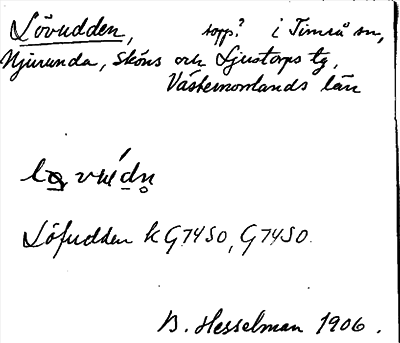 Lövudden, topp? i Timrå sn,
Njurunda, Sköns och Ljustorps tg,
Västernorrlands län
Löfudden k G74SO, G74SO.
B. Hesselman 1906.